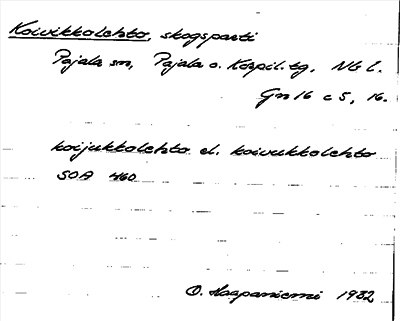 Koivikkolehto, skogsparti
Pajala sn, Pajala o. Korpil. tg, Nb l.
Gn 16 c 5, 16.
koijukkolehto el. koivukkolehto
SOA 460
O. Haapaniemi 1932